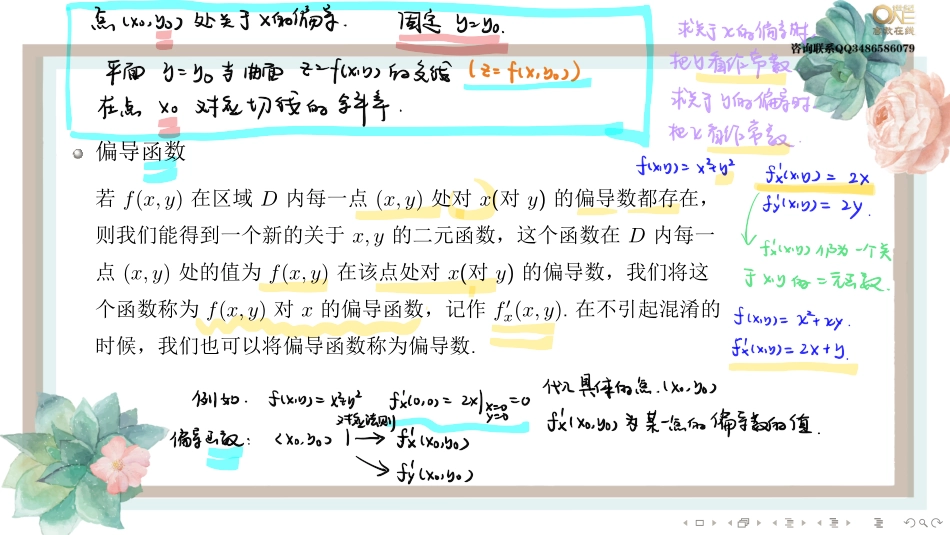 点(x₀,y₀) 处关于x的偏导. 固定 y=y₀.
平面 y=y₀ 与曲面 z=f(x,y) 的交线 (z=f(x,y₀))
在点 x₀ 对应切线的斜率.
求关于x的偏导时
把y看作常数
求关于y的偏导时
把x看作常数.
ONE
咨询联系QQ3486586079
偏导函数
若 f(x, y) 在区域 D 内每一点 (x, y) 处对 x(对 y) 的偏导数都存在，
则我们能得到一个新的关于 x, y 的二元函数，这个函数在 D 内每一
点 (x, y) 处的值为 f(x, y) 在该点处对 x(对 y) 的偏导数，我们将这
个函数称为 f(x, y) 对 x 的偏导函数，记作 f′ₓ(x, y). 在不引起混淆的
时候，我们也可以将偏导函数称为偏导数.
f(x,y)=x²+y²
fx'(x,y)=2x
fy'(x,y)=2y.
fx'(x,y)仍为一个关
于x,y的二元函数.
f(x,y)=x²+xy.
fx'(x,y)=2x+y.
例如. f(x,y)=x²+y² fx'(0,0)=2x|x=0 y=0 =0
代入具体的点.(x₀,y₀)
fx'(x₀,y₀)为某一点的偏导数的值.
偏导函数: (x₀,y₀) 对应法则 → fx'(x₀,y₀)
fy'(x₀,y₀)